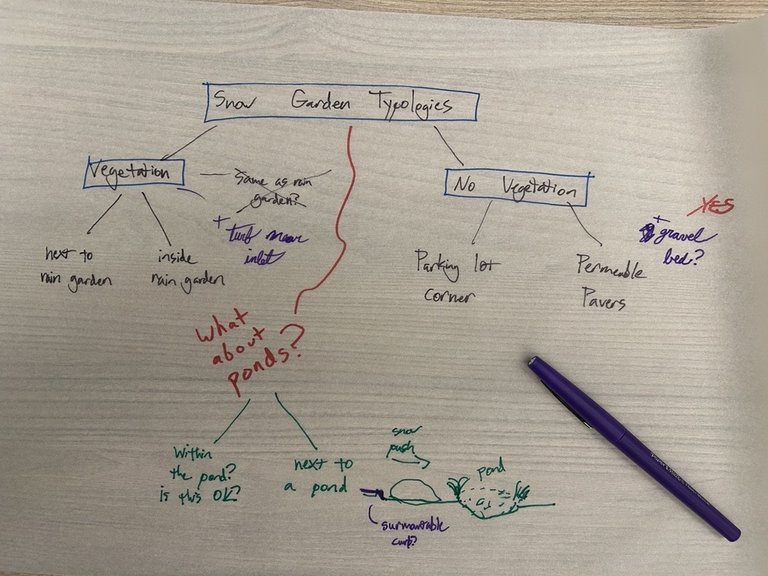 Snow Garden Typologies
Vegetation
same as rain
garden?
+ turf near
inlet
next to
rain garden
inside
rain garden
No Vegetation
YES
+ gravel
bed?
Parking lot
corner
Permeable
Pavers
What
about
ponds?
Within
the pond?
is this OK?
next to
a pond
snow
push
pond
surmountable
curb?